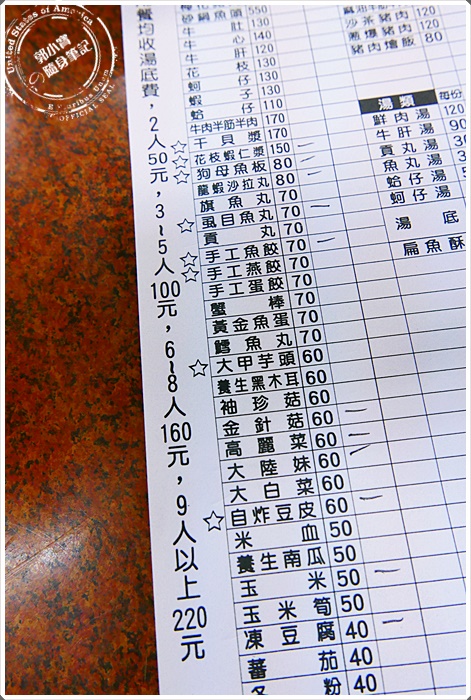 United States of America
郭小寶
の隨身筆記
E Pluribus Unum
OFFICIAL SEAL
餐均收湯底費，2人50元，3~5人100元，6~8人160元，9人以上220元
砂鍋魚頭 550
牛肚 130
牛心 140
牛肝 120
花枝 130
蝦 130
蚵仔 130
蛤仔 110
牛肉半筋半肉 170
干貝漿 170
☆花枝蝦仁漿 150
☆狗母魚板 80
☆龍蝦沙拉丸 80
旗魚丸 70
虱目魚丸 70
☆貢丸 70
手工魚餃 70
☆手工燕餃 70
☆手工蛋餃 70
蟹棒 70
黃金魚蛋 70
鱈魚丸 70
☆大甲芋頭 60
養生黑木耳 60
袖珍菇 60
金針菇 60
高麗菜 60
大陸妹 60
大白菜 60
☆自炸豆皮 60
米血 50
養生南瓜 50
玉米 50
玉米筍 50
凍豆腐 40
蕃茄 40
冬粉 40
沙茶豬肉 120
蔥爆豬肉 120
豬肉燴飯 80
湯類 每份
鮮肉湯 120
牛肝湯 90
貢丸湯
魚丸湯
蛤仔湯
蚵仔湯
湯底
扁魚酥